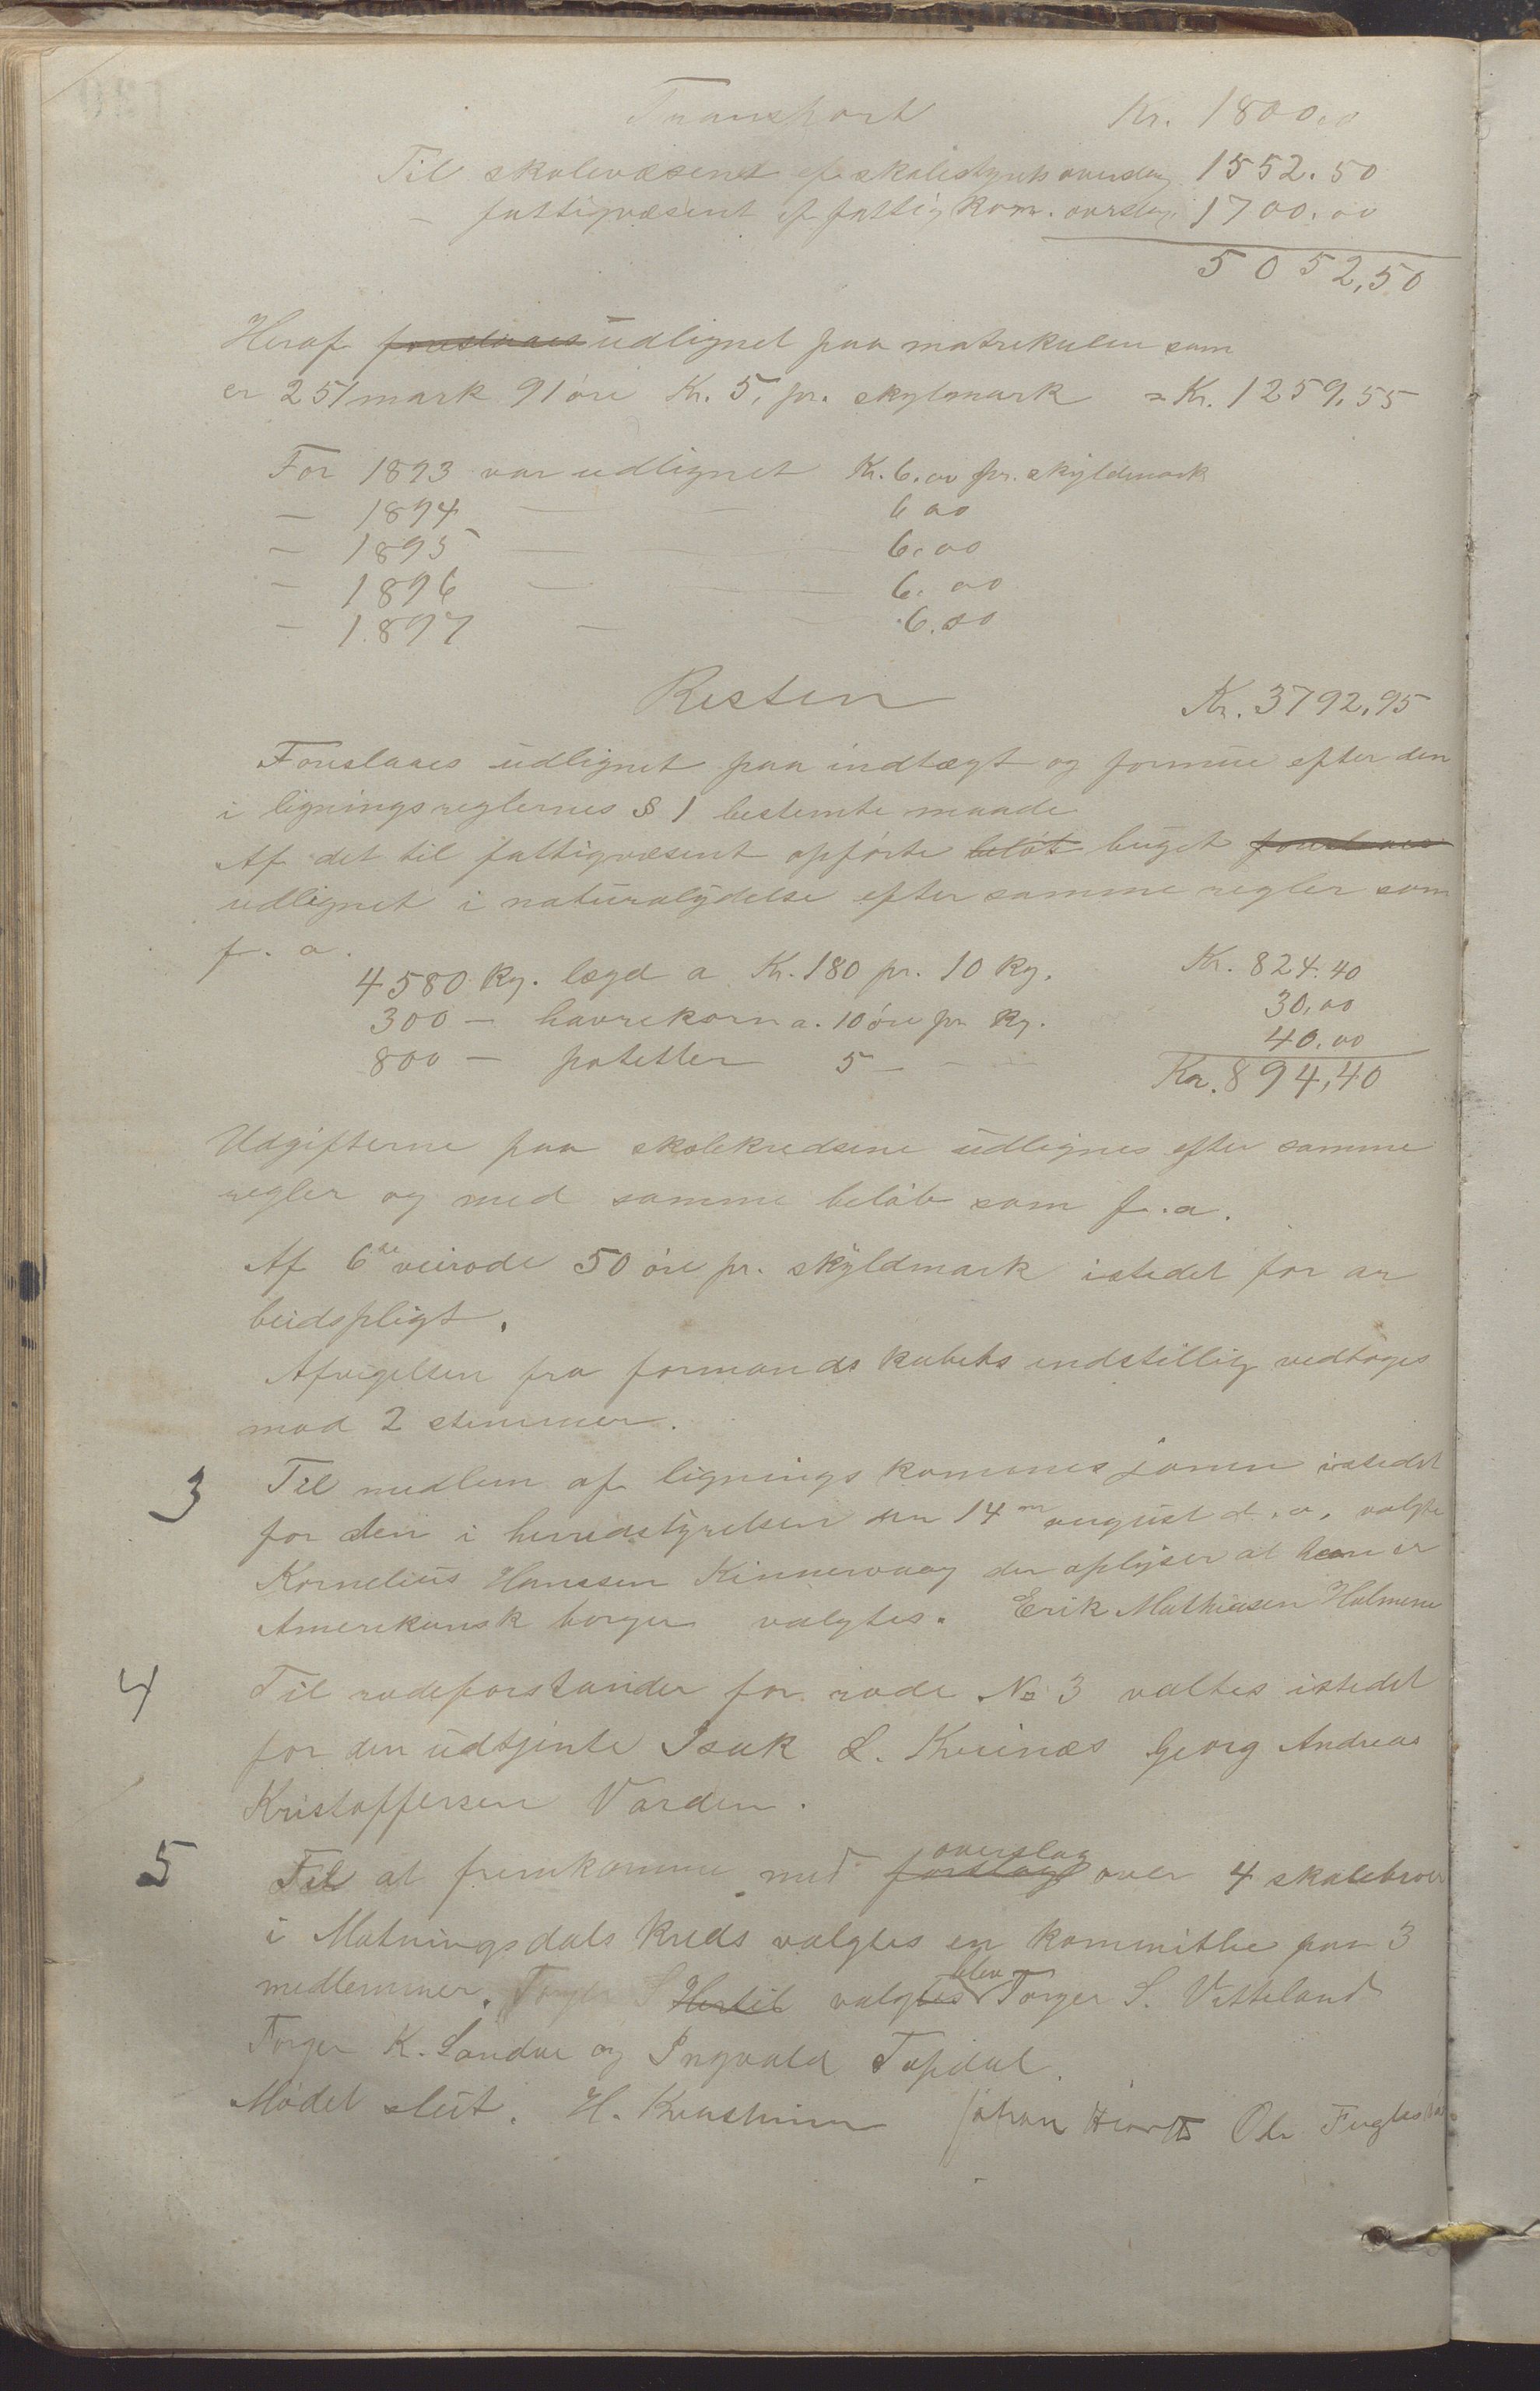 Transport Kr. 1800.00
Til skolevæsenet ef. skolestyrets overslag 1552.50
— fattigvæsent ef fattigkom. overslag 1700.00
5052,50
Heraf foreslaaes udlignet paa matrekulen som
er 251 mark 91 öre Kr. 5, pr. skylmark = Kr. 1259,55
For 1893 var udlignet Kr. 6.00 pr. skyldmark
— 1894 — — 6 00
— 1895 — — 6.00
— 1896 — — 6.00
— 1897 — — 6.00
Resten Kr. 3792,95
Foreslaaes udlignet paa indtægt og formue efter den
i ligningsreglernes § 1 bestemte maade
Af det til fattigvæsent opførte beløb buget foreslaaes
udlignet i naturalydelse efter samme regler som
f. a.
4580 Kg. lægd a Kr. 180 pr. 10 Kg. Kr. 824.40
300 — havrekorn a. 10 öre pr Kg. 30,00
800 — poteter 5 — — — 40.00
Kr. 894,40
Udgifterne paa skolekredsene udlignes efter samme
regler og med samme beløb som f. a.
Af 6te veirode 50 öre pr. skyldmark istedet for ar
beidspligt.
Afvigelsen fra formandskabets indstillig vedtoges
mod 2 stemmer.
3 Til medlem af lignings kommesjonen istedet
for den i herredstyrelsen den 14de august d. a. valgte
Kornelius Hanssen Kinnervaag der oplyser at han er
Amerikansk borger valgtes. Erik Mathiasen Holmene
4 Til rodeforstander for rode No 3 valtes istedet
for den udtjente Isak L. Kvinæs Georg Andreas
Kristoffersen Varden.
5 Til at fremkomme med forslag overslag over 4 skolebroer
i Matningsdals kreds valgtes en kommitte paa 3
medlemmer. Torger S Hertil valgtes blev Torger S. Vatteland
Torger K. Landue og Ingvald Topdal.
Mødet slut. H. Kvashiem Johan Hiorth Ole Fuglest